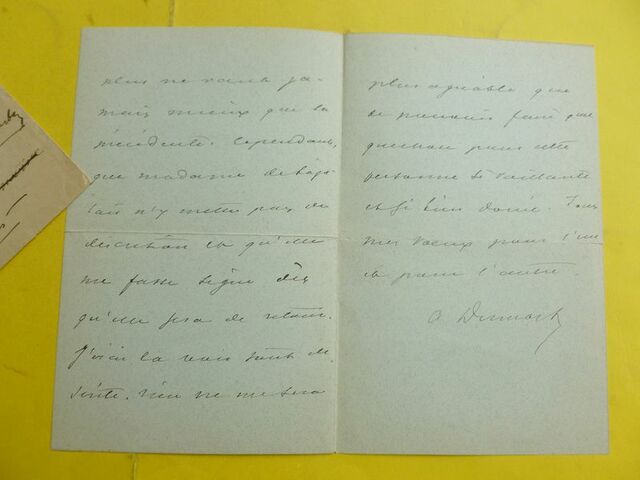 plus ne vaut ja-
mais mieux que la
précédente. Cependant,
que madame
n'y mette pas de
discrétion et qu'elle
me fasse signe dès
qu'elle sera de retour.
J'irai la voir tout de
suite. Rien ne me sera
plus agréable que
de pouvoir faire quelque
chose pour cette
personne si vaillante
et si bien douée. Tous
mes vœux pour l'une
et pour l'autre.